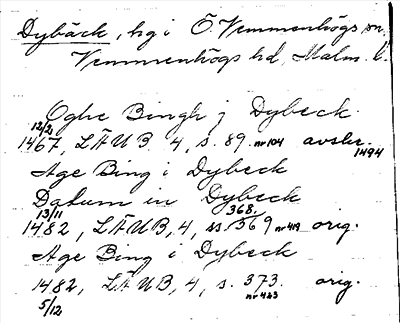 Dybäck, hg i Ö. Vemmenhögs sn,
Vemmenhögs hd, Malm. l.
Oghe Bingh j Dybeck.
12/2
1467, LÄUB 4, s. 89. nr 104 avskr. 1494
Åge Bing i Dybeck
Datum in Dybeck
13/11 368.
1482, LÄUB, 4, ss. 369 nr 419 orig.
Åge Bing i Dybeck
1482, LÄUB, 4, s. 373. orig.
5/12 nr 423